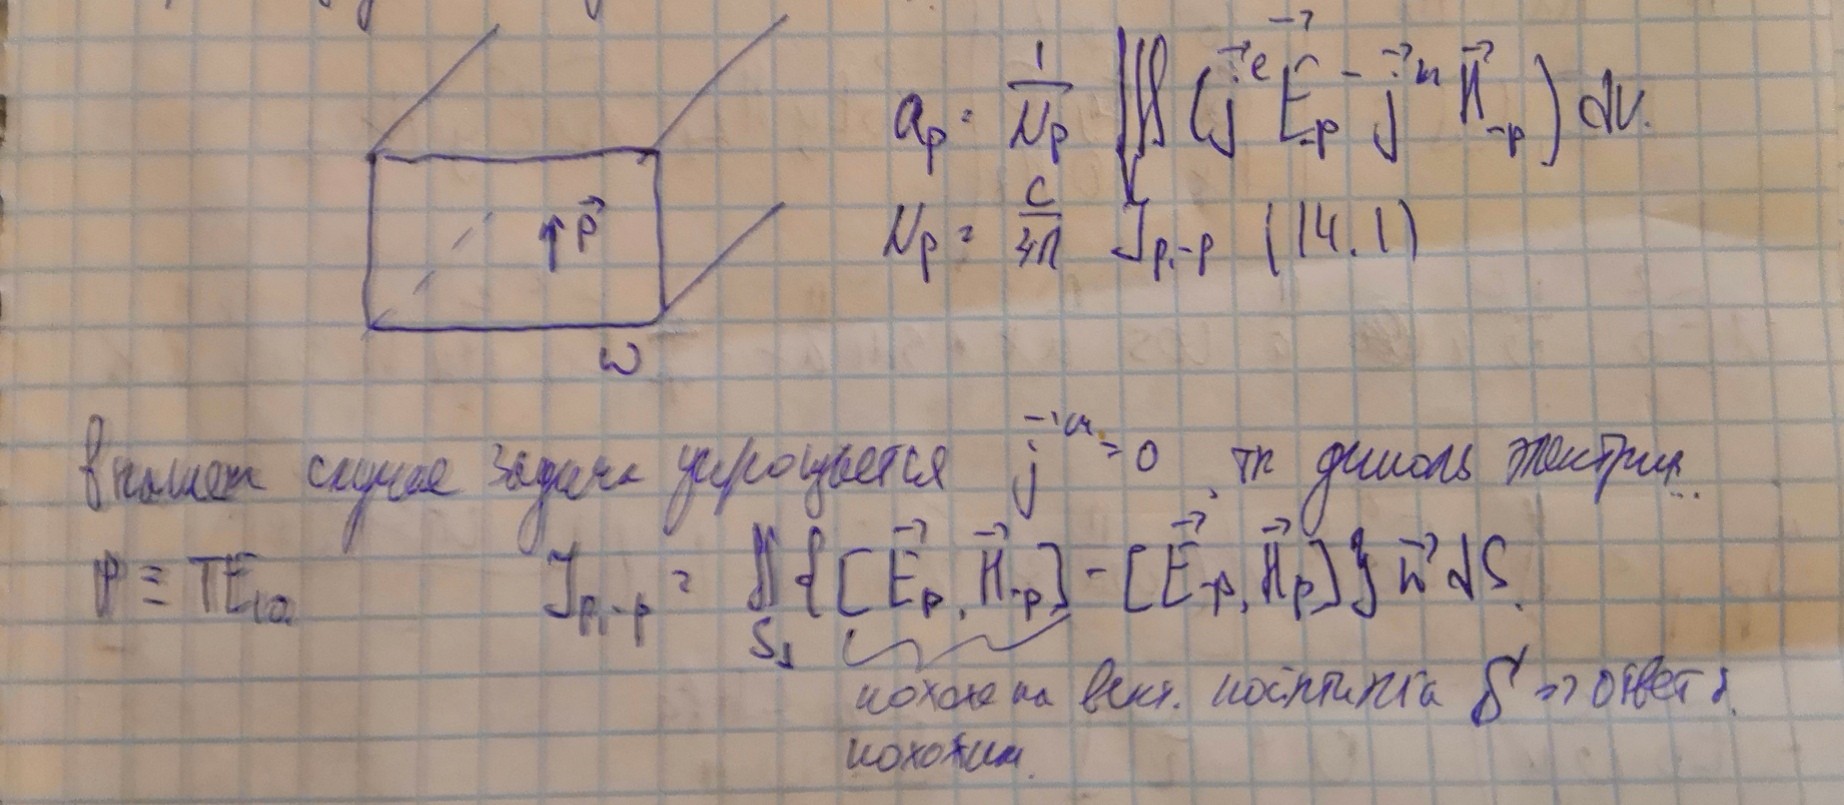 a_p = 1/N_p ∭ (j⃗^e E⃗_-p - j⃗^m H⃗_-p) dV.
p⃗
N_p = c/4π J_p,-p (14.1)
ω
В нашем случае задача упрощается j⃗^m = 0, тк диполь электрич.
p ≡ TE₁₀ J_p,-p = ∬_S⊥ {[E⃗_p, H⃗_-p] - [E⃗_-p, H⃗_p]} n⃗ dS.
похоже на вект. пойнтинга S => ответ д.
похожим.